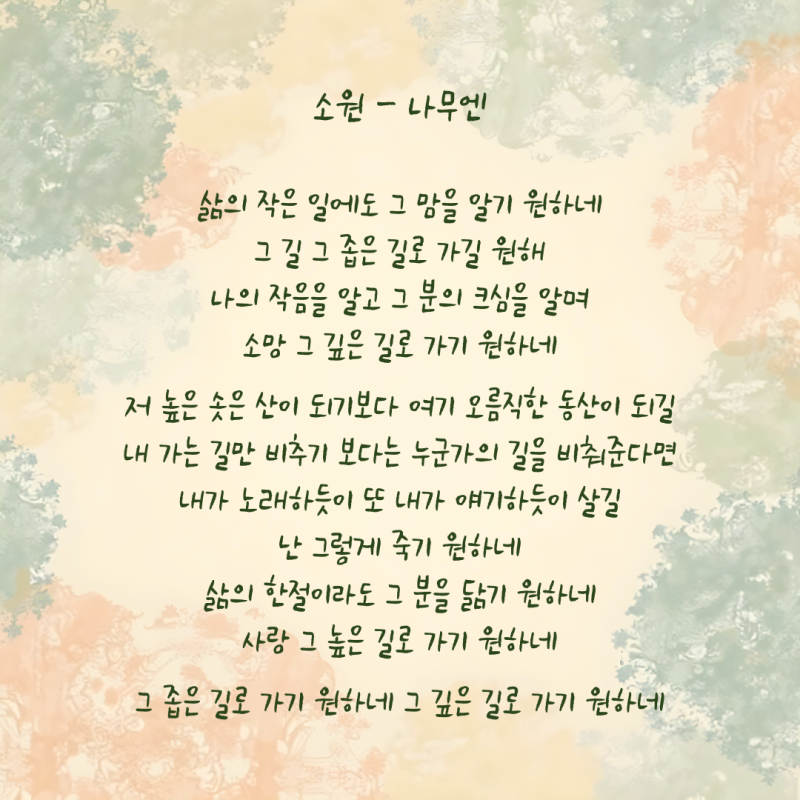 소원 - 나무엔
삶의 작은 일에도 그 맘을 알기 원하네
그 길 그 좁은 길로 가길 원해
나의 작음을 알고 그 분의 크심을 알며
소망 그 깊은 길로 가기 원하네
저 높은 솟은 산이 되기보다 여기 오름직한 동산이 되길
내 가는 길만 비추기 보다는 누군가의 길을 비춰준다면
내가 노래하듯이 또 내가 얘기하듯이 살길
난 그렇게 죽기 원하네
삶의 한절이라도 그 분을 닮기 원하네
사랑 그 높은 길로 가기 원하네
그 좁은 길로 가기 원하네 그 깊은 길로 가기 원하네